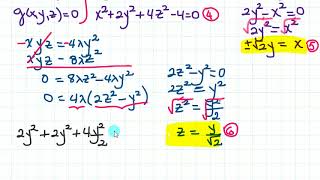 g(x,y,z)=0 } x²+2y²+4z²-4=0 ④
-xyz=-4λy²
xyz=8λz²
0=8λz²-4λy²
0=4λ(2z²-y²)
2z²-y²=0
√z²=√y²/2
z=y/√2 ⑥
2y²-x²=0
√2y²=√x²
±√2y=x ⑤
2y²+2y²+4y²/2